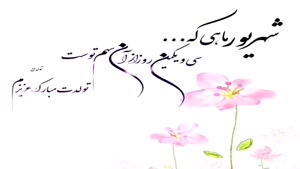 شهریور ماهی که...
سی و یکمین روز از آن سهم توست
تولدت مبارک عزیزم